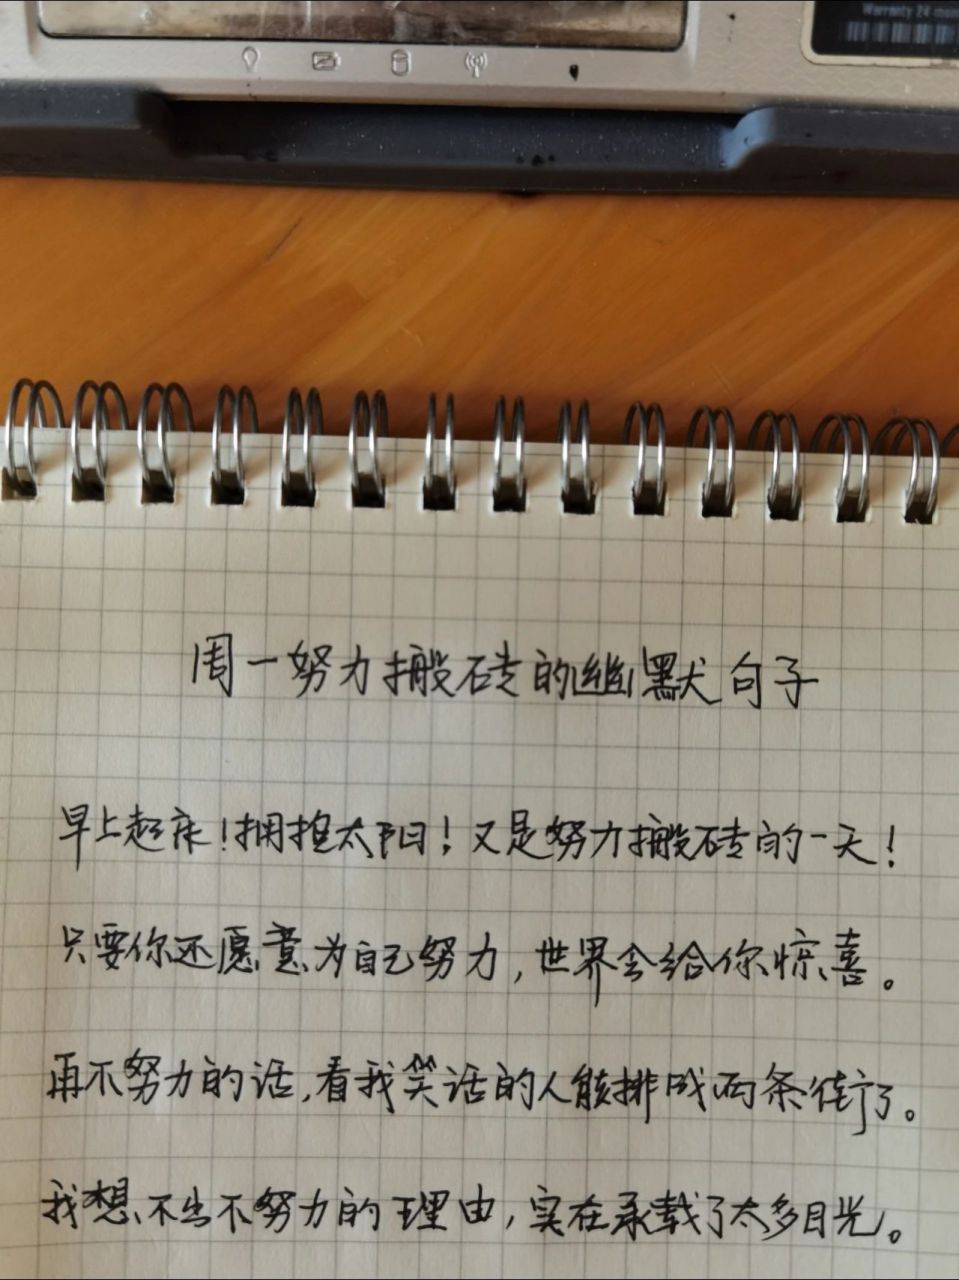 Warranty 24
周一努力搬砖的幽默句子
早上起床！拥抱太阳！又是努力搬砖的一天！
只要你还愿意为自己努力，世界会给你惊喜。
再不努力的话，看我笑话的人能排成两条街了。
我想不出不努力的理由，实在承载了太多目光。